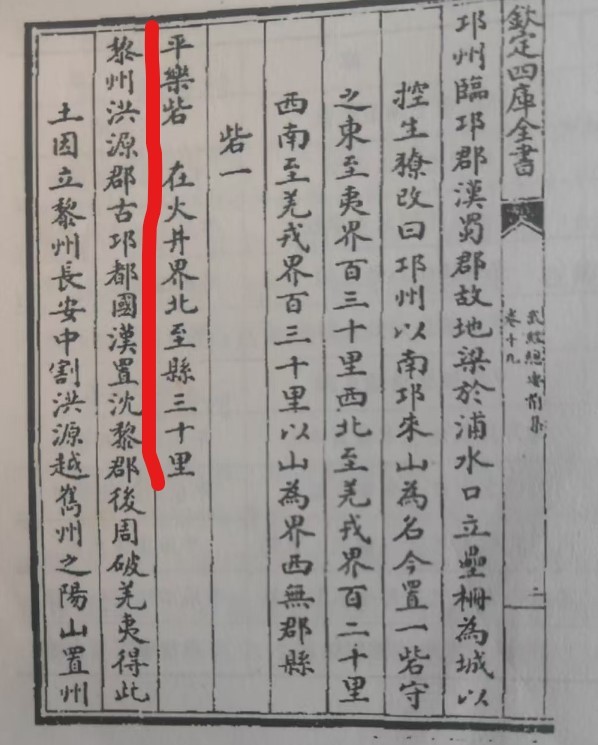 欽定四庫全書
武經總要前集
卷十九
二
邛州臨邛郡漢蜀郡故地梁於浦水口立壘柵為城以
控生獠改曰邛州以南邛來山為名今置一砦守
之東至夷界百三十里西北至羌戎界百二十里
西南至羌戎界百三十里以山為界西無郡縣
砦一
平樂砦 在火井界北至縣三十里
黎州洪源郡古邛都國漢置沈黎郡後周破羌夷得此
土因立黎州長安中割洪源越嶲州之陽山置州